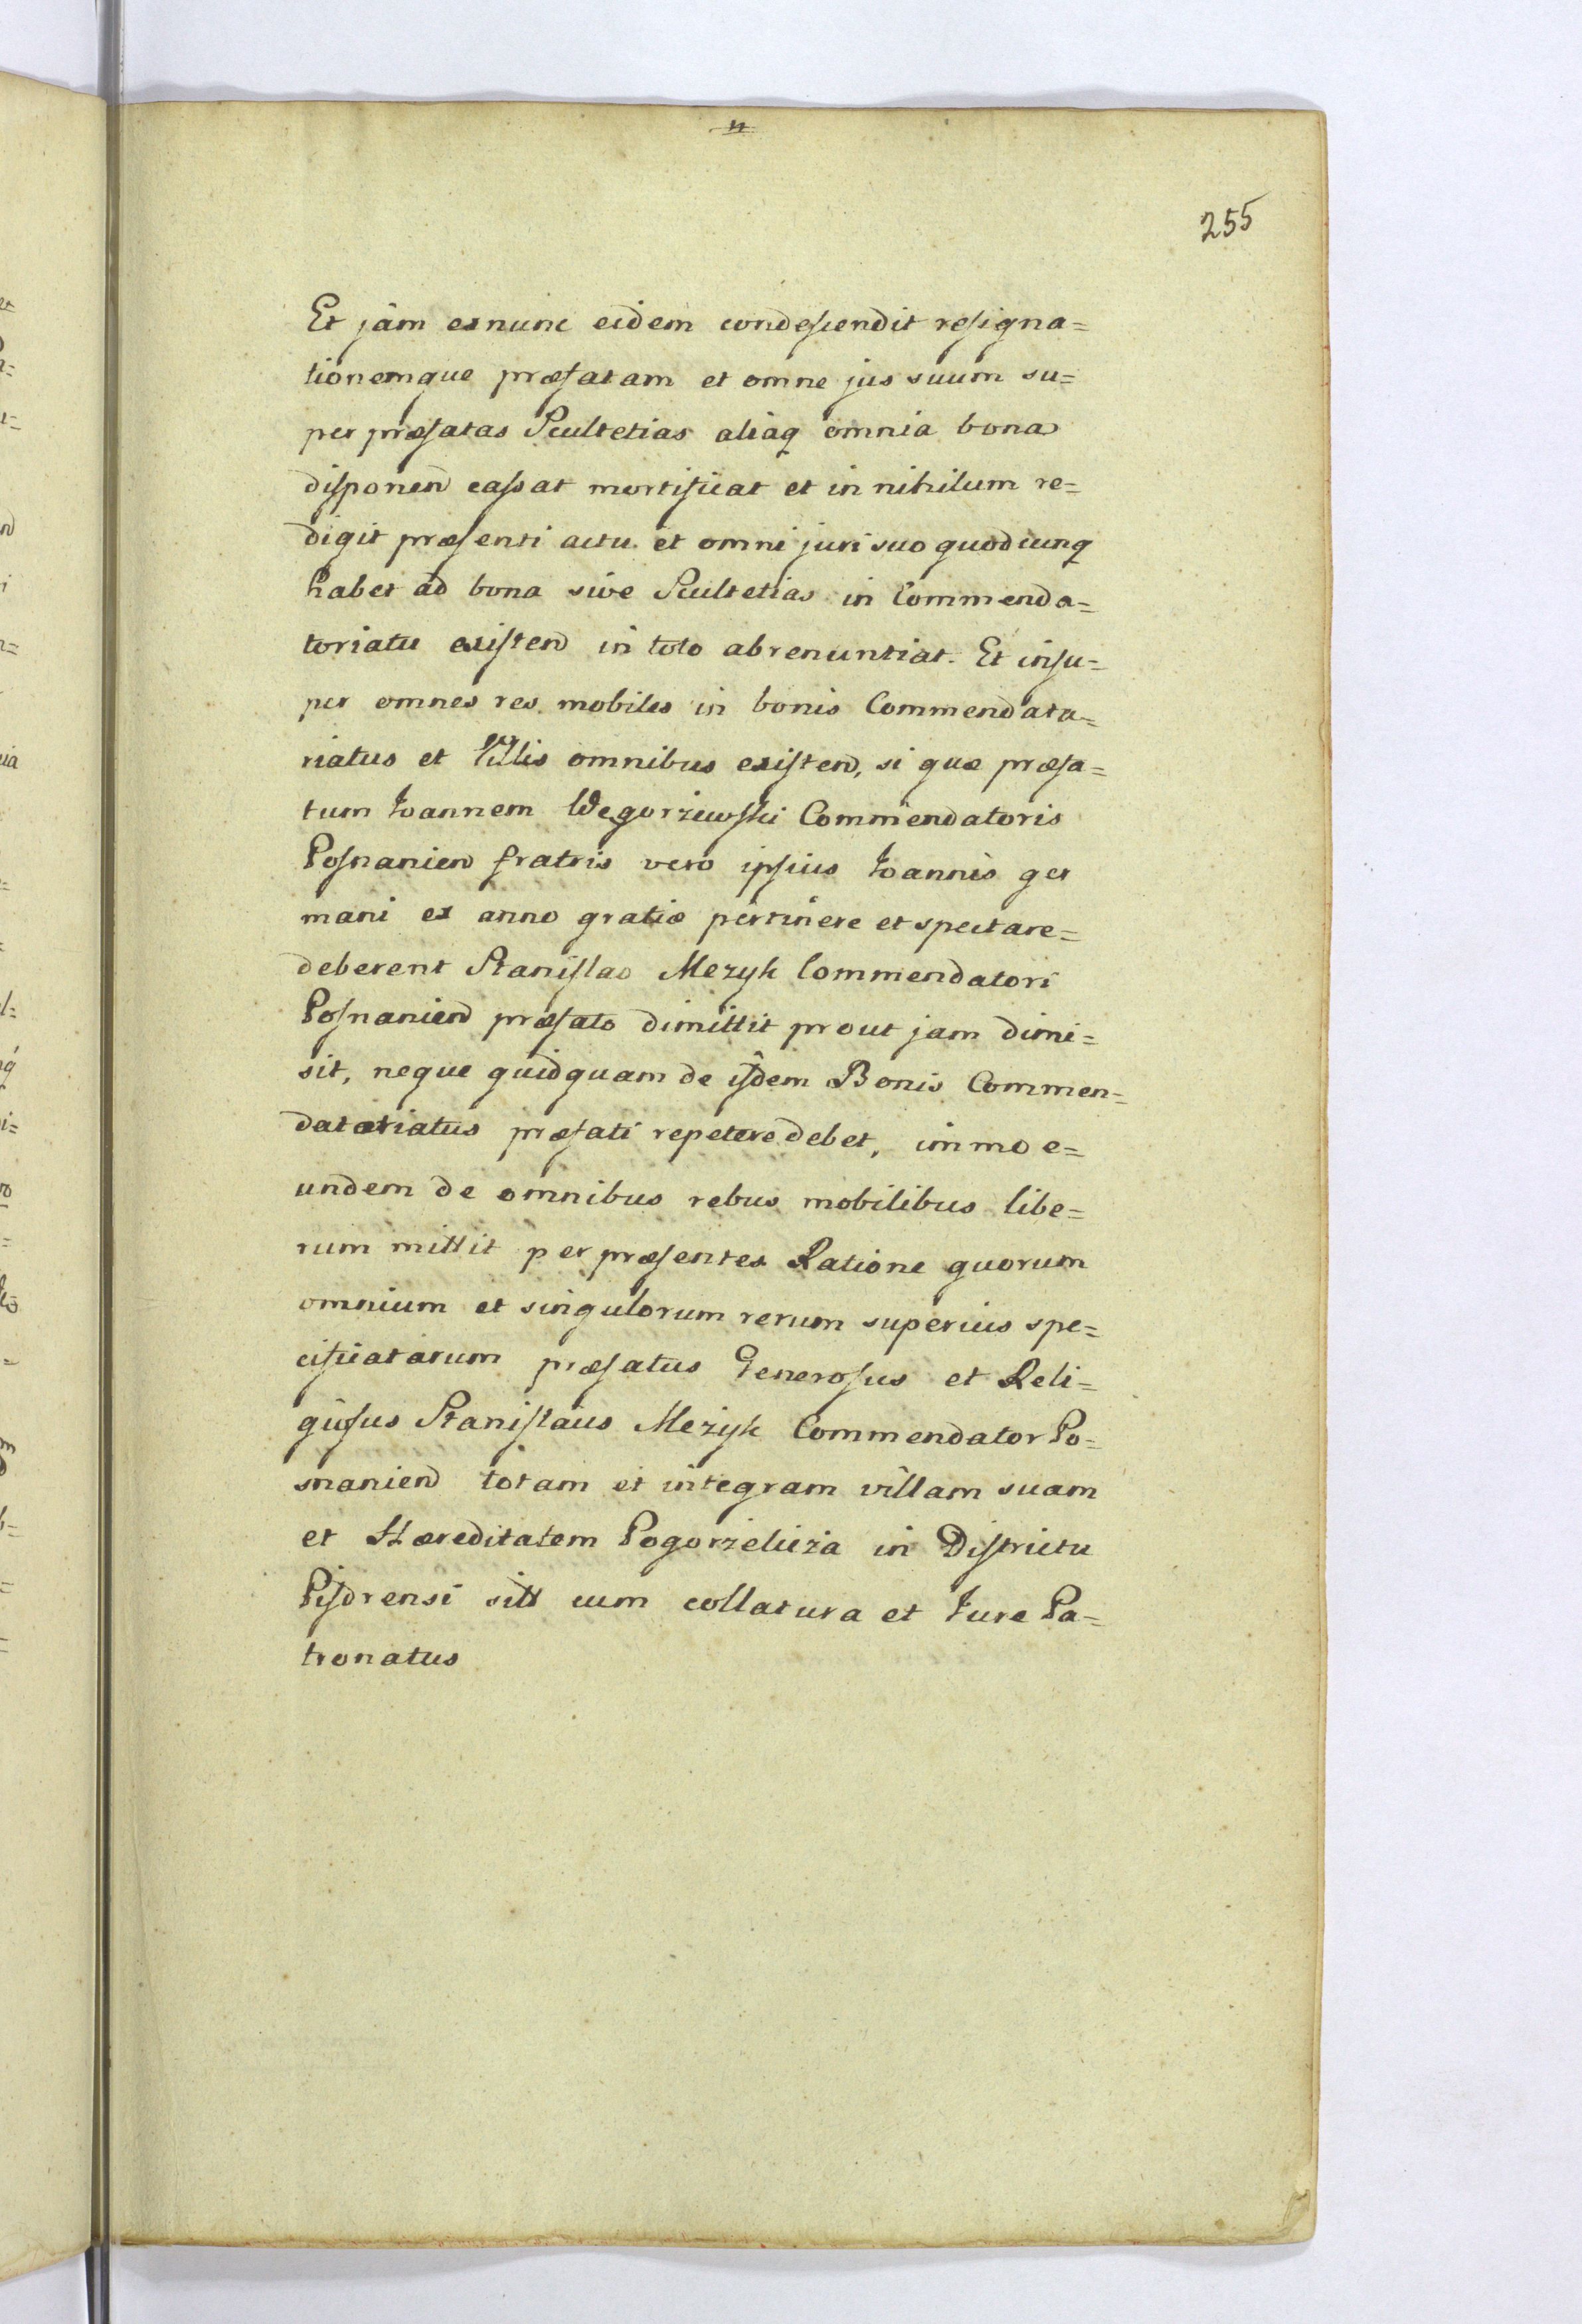 255
Et jam exnunc eidem condescendit resigna=
tionemque præfatam et omne jus suum su=
per præfatas Scultetias aliaq omnia bona
disponen cassat mortificat et in nihilum re=
digit præsenti actu et omni juri suo quodcunq
habet ad bona sive Scultetias in Commenda=
toriatu existen in toto abrenuntiat. Et insu=
per omnes res mobiles in bonis Commendata=
riatus et Villis omnibus existen, si quæ præfa=
tum Joannem Węgorzewski Commendatoris
Posnanien fratris vero ipsius Joannis ger
mani ex anno gratiæ pertinere et spectare=
deberent Stanislao Mezyk Commendatori
Posnanien præfato dimittit prout jam dimi=
sit, neque quidquam de iisdem Bonis Commen=
datariatus præfati repetere debet, immo e=
undem de omnibus rebus mobilibus libe=
rum mittit per præsentes Ratione quorum
omnium et singulorum rerum superius spe=
cificatarum præfatus Generosus et Reli=
giosus Stanislaus Mezyk Commendator Po=
snanien totam et integram villam suam
et Hæreditatem Pogorzelicza in Districtu
Pisdrensi sitt cum collatura et Jure Pa=
tronatus